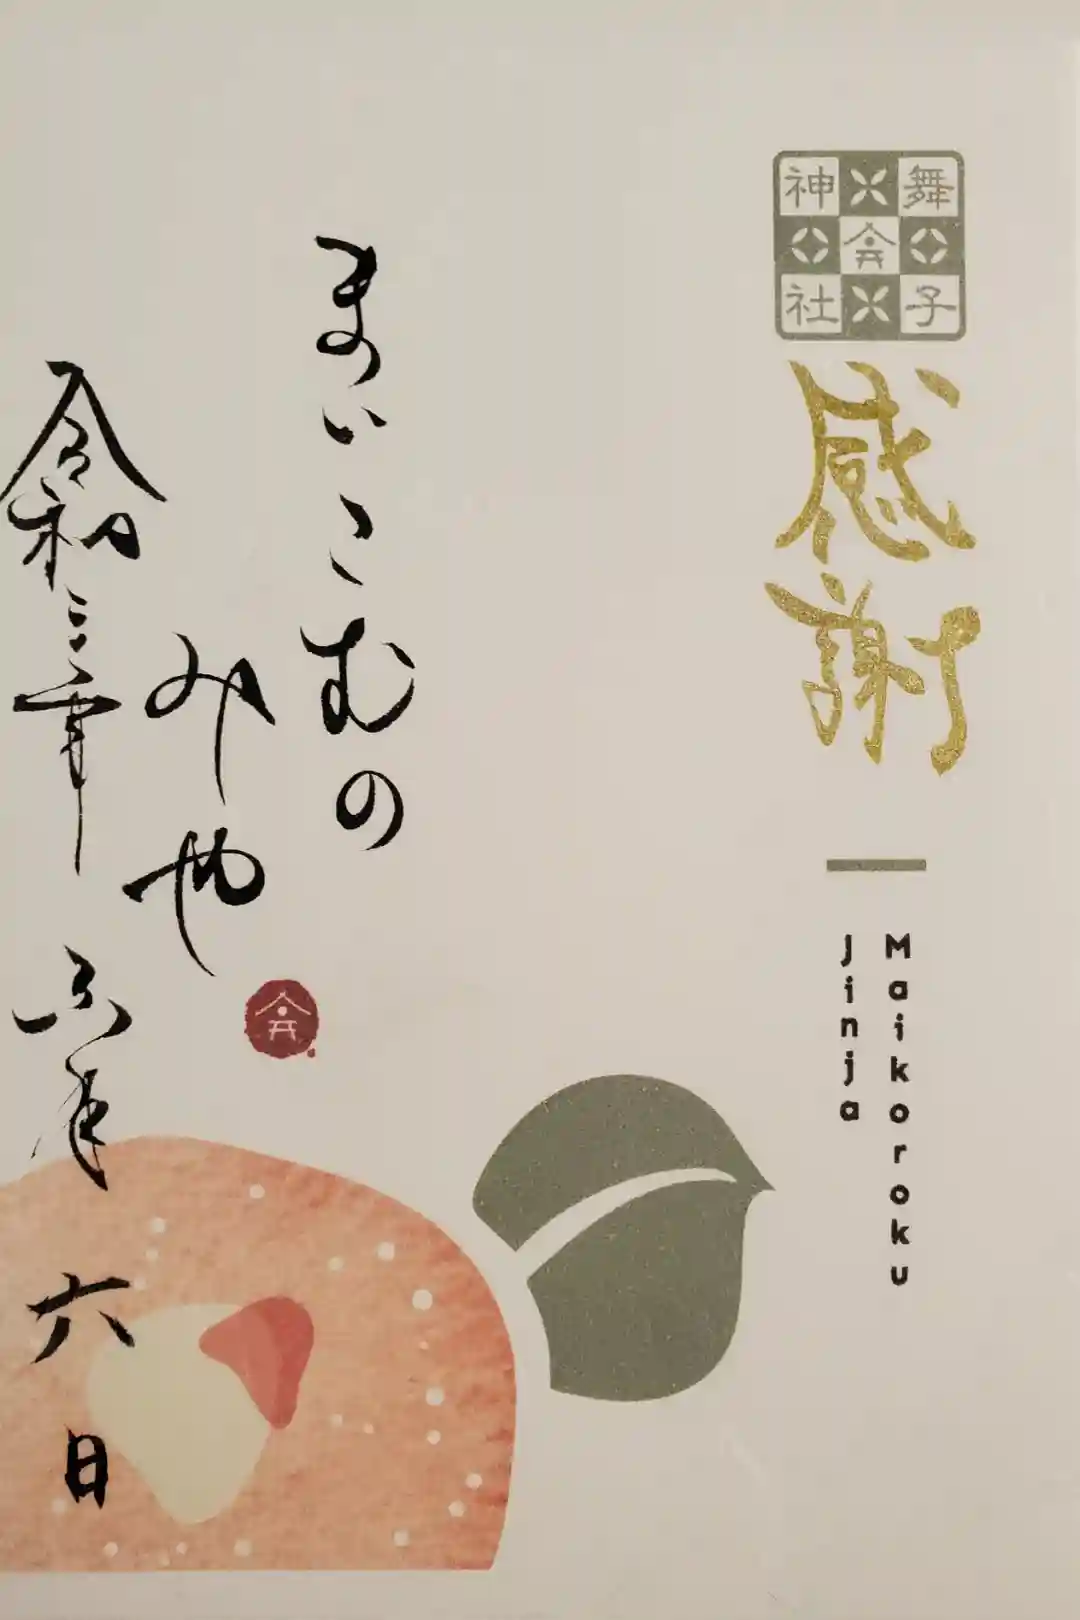 舞子
神社
感謝
Maikoroku
Jinja
まいこむの
みや
令和三年
六日